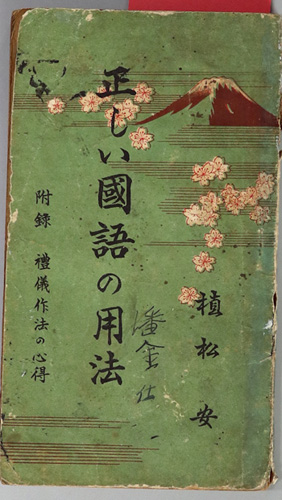 正しい國語の用法
附錄 禮儀作法の心得
植松安
潘金